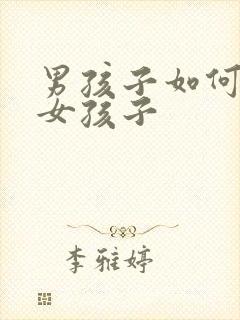 男孩子如何
女孩子
李雅婷